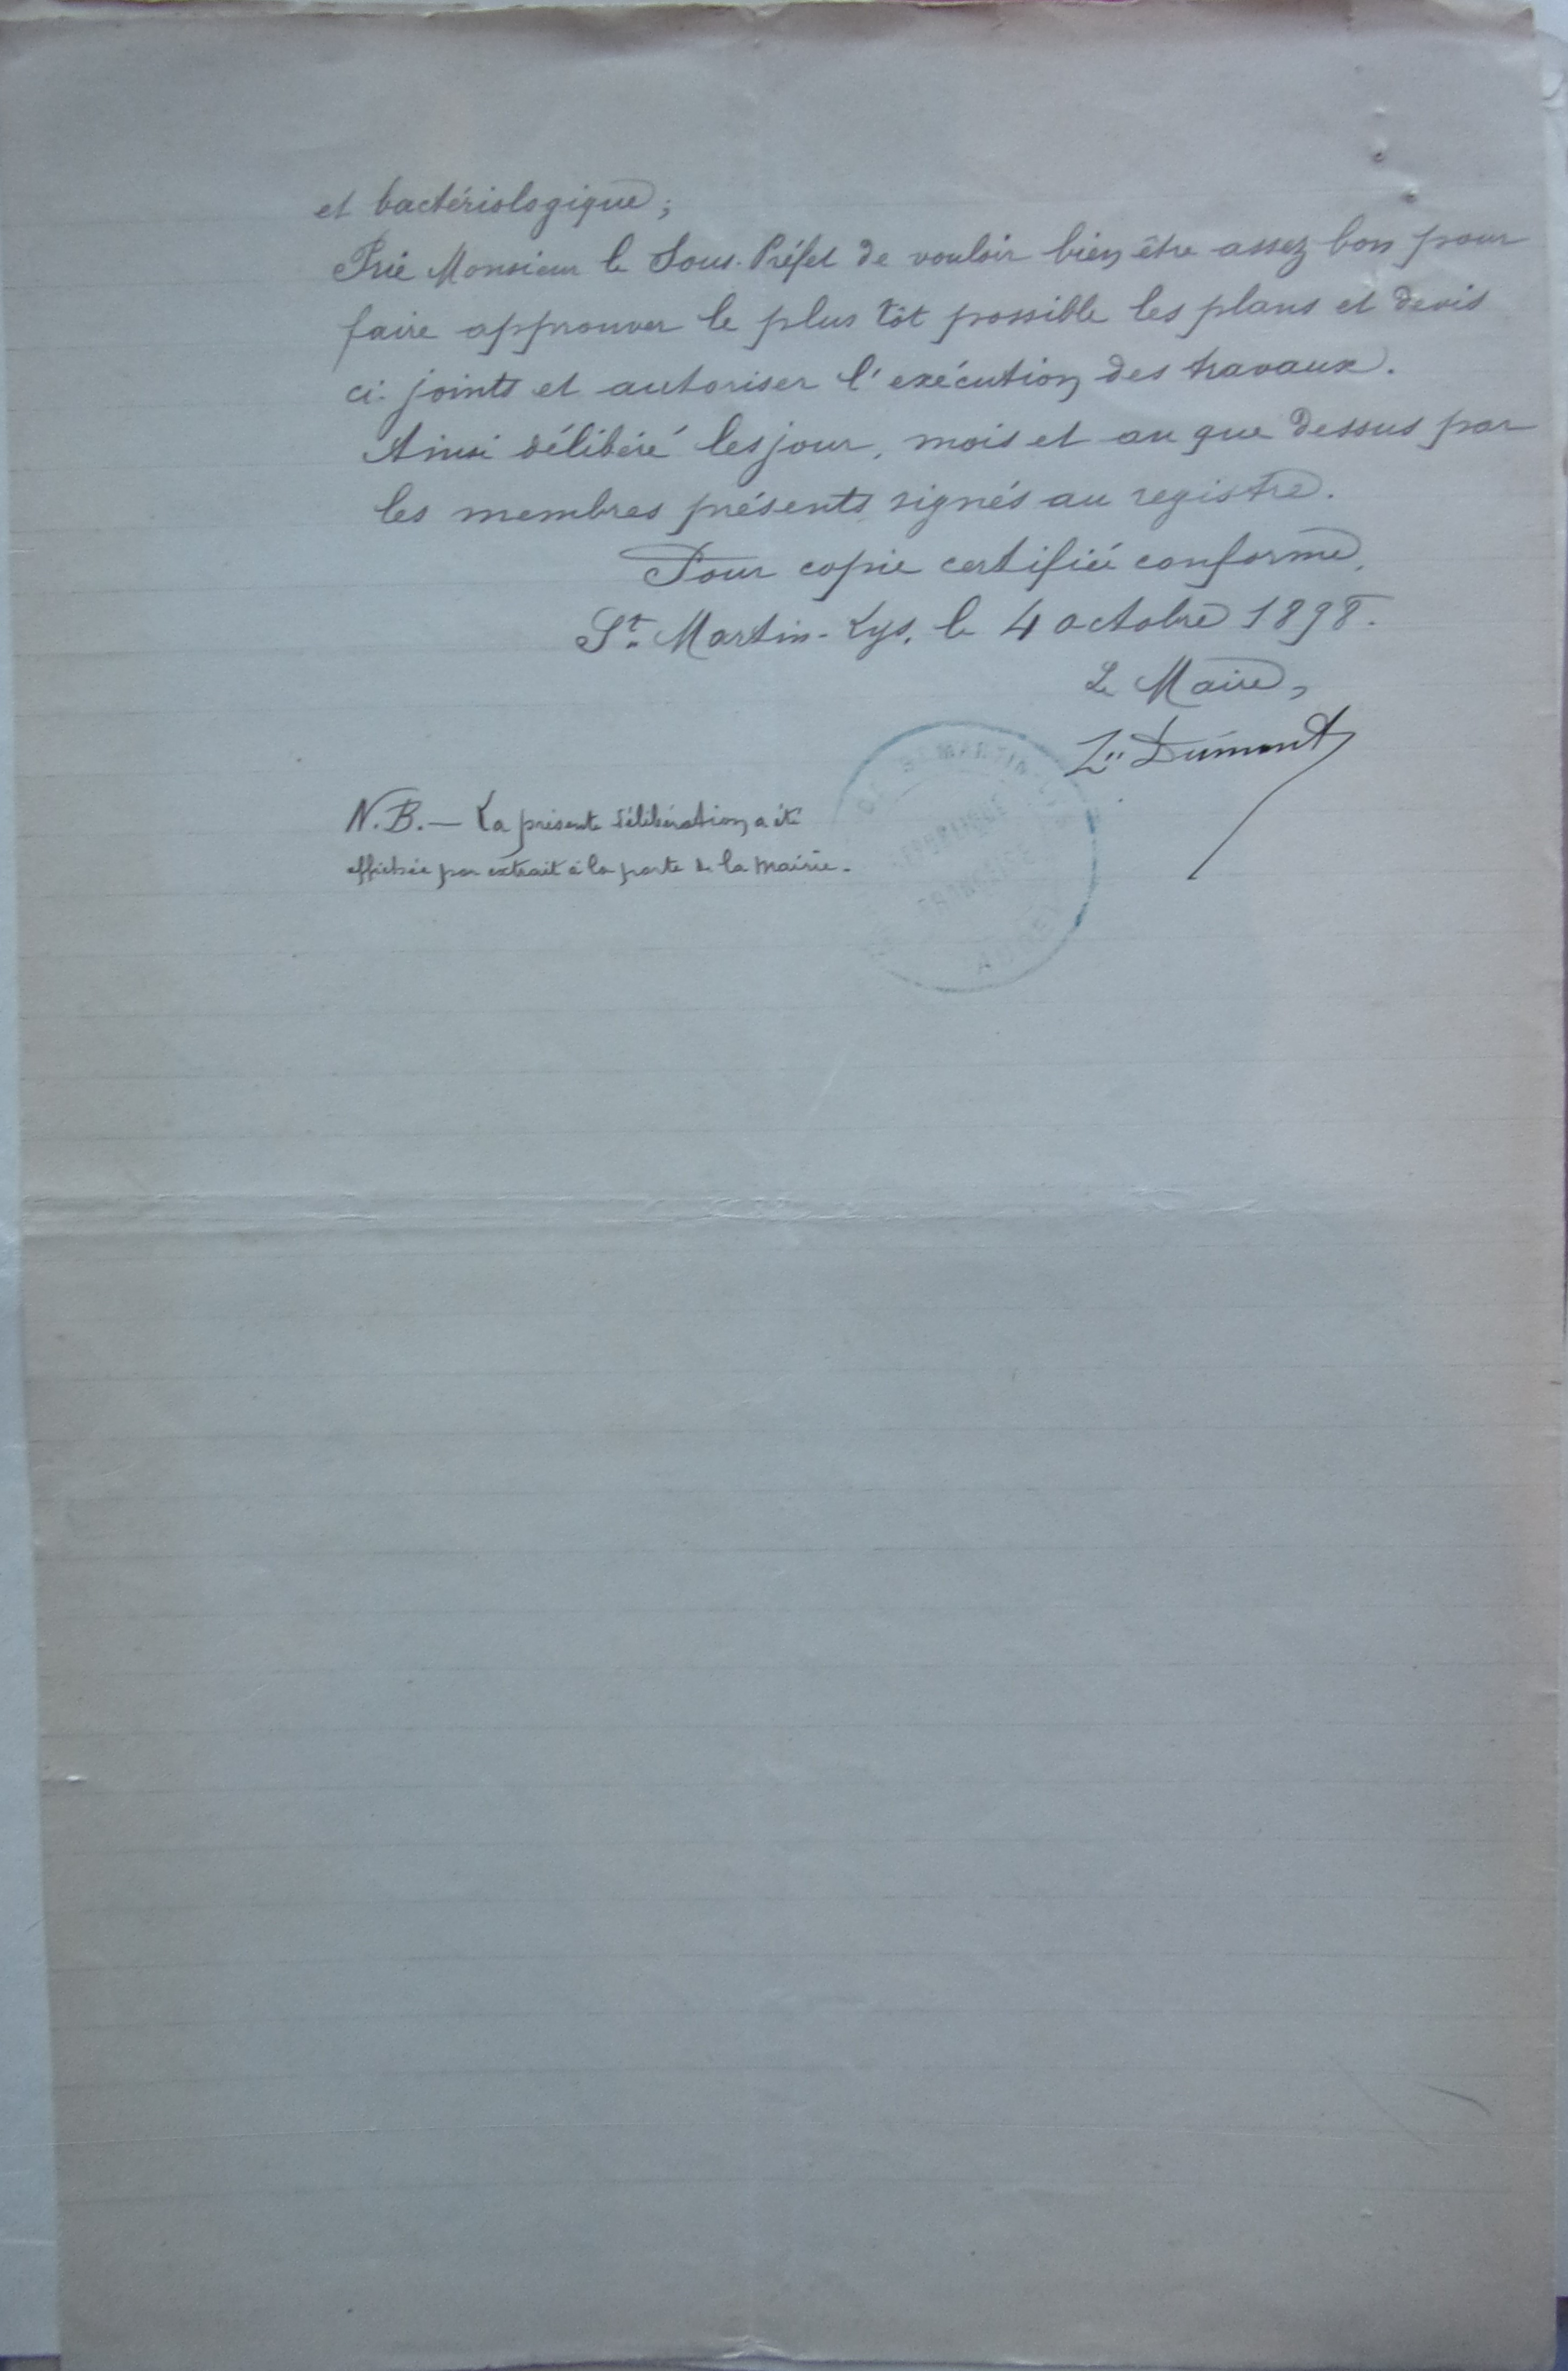 et bactériologique;
Prie Monsieur le Sous-Préfet de vouloir bien être assez bon pour
faire approuver le plus tôt possible les plans et devis
ci-joints et autoriser l'exécution des travaux.
Ainsi délibéré les jour, mois et an que dessus par
les membres présents signés au registre.
Pour copie certifiée conforme,
St. Martin-Lys, le 4 octobre 1898.
Le Maire,
Dumont
N.B. — La présente délibération a été
affichée par extrait à la porte de la Mairie.
DE ST MARTIN
REPUBLIQUE
FRANCAISE
AUDE